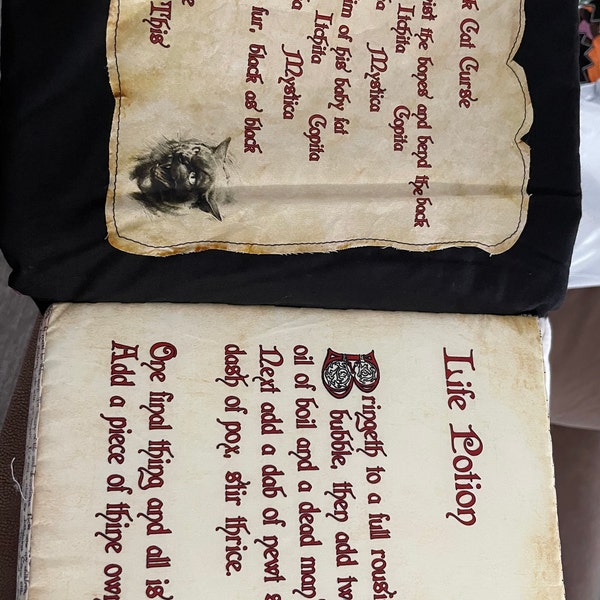 Cat Curse
the bones and bend the back
Itchita Copita
Mystica
of his baby fat
Itchita Copita
Mystica
fur, black as black
This
Life Potion
Bringeth to a full
bubble, then add
oil of boil and a dead
Next add a dab of newt
dash of pox stir thrice.
One final thing and all
Add a piece of thine